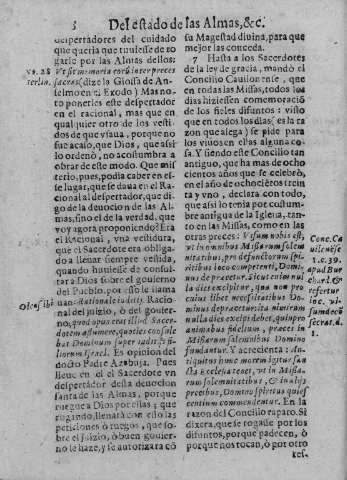 3 Del estado de las Almas, &c.
despertadores del cuidado
que queria que tuuiesse de ro
garle por las Almas dellos:
vs. 28 Vt sit memoria corū interpreces
terlin. sacras (dize la Glossa de An-
selmo en el Exodo) Mas no-
to ponerles este despertador
en el racional, mas que en
qualquier otro de los vesti-
dos de que vsaua, porque no
fue acaso, que Dios, que as-
si lo ordenò, no acostumbra a
obrar de este modo. Que mis
terio, pues, podia caber en es-
se lugar, que se daua en el Ra-
cional al despertador, que di-
go de la deuocion de las Al-
mas, sino el de la verdad, que
voy agora proponiendo? Era
el Racional, vna vestidura,
que el Sacerdote era obliga-
do a lleuar siempre vestida,
quando huuiesse de consul-
tar a Dios sobre el gouierno
del Pueblo, por esso le llama
uan: Rationale iudicij. Racio-
nal del juizio, ò del gouier-
no, quod opus erat illud Sacer-
dotem assumere, quoties consule
bat Dominum super iudicijs fi-
liorum Israel. Es opinion del
docto Padre Azebuja. Pues
lleue en èl el Sacerdote vn
despertador desta deuocion
santa de las Almas, porque
ruegue a Dios por ellas; y que
rogando, lleuarà con ello las
peticiones ò ruegos, que so-
bre el juizio, ò buen gouier-
no le haze, y se autorizarà cō
su Magestad diuina, para que
mejor las conceda.
7 Hasta a los Sacerdotes
de la ley de gracia, mandò el
Concilio Cauilonense, que
en todas las Missas, todos los
dias hiziessen comemoraciō
de los fieles difuntos: visto
que en todos los dias (es la ra
zon que alega) se pide para
los viuos en ellas alguna co-
sa. Y siendo este Concilio tan
antiguo, que ha mas de ocho
cientos años que se celebrò,
en el año de ochocientos trein
ta y vno, declara con todo,
que assi lo tenia por costum-
bre antigua de la Iglesia, tan-
to en las Missas, como en las
otras preces: Visum nobis est,
vt in omnibus Missarum solem
nitatibus, pro defunctorum spiri
tibus loco competenti, Domi-
nus deprecetur. Sicut enim nul
la dies excipitur, qua non pro
cuius libet necessitatibus Domi
nus deprecatur, ita videlicet dies
nulla dies excipi debet, quin pro
animabus fidelium, preces in
Missarum solemnibus Domino
fundantur. Y acrecienta: An-
tiquitus hunc morem igitur san
cta Ecclesia tenet, vt in Missa-
rum solemnitatibus, & in alijs
precibus, Domino spiritus quies
centium commendentur. En la
razon del Concilio reparo. Si
dixera, que se rogasse por los
difuntos, porque padecen, ò
porque nos tocan, ò por otro
res.
Conc. Ca
uilonense
1. c. 39.
apud Bur
chard. &
refertur
loc. vi-
sum de cō
secrat. d.
1.